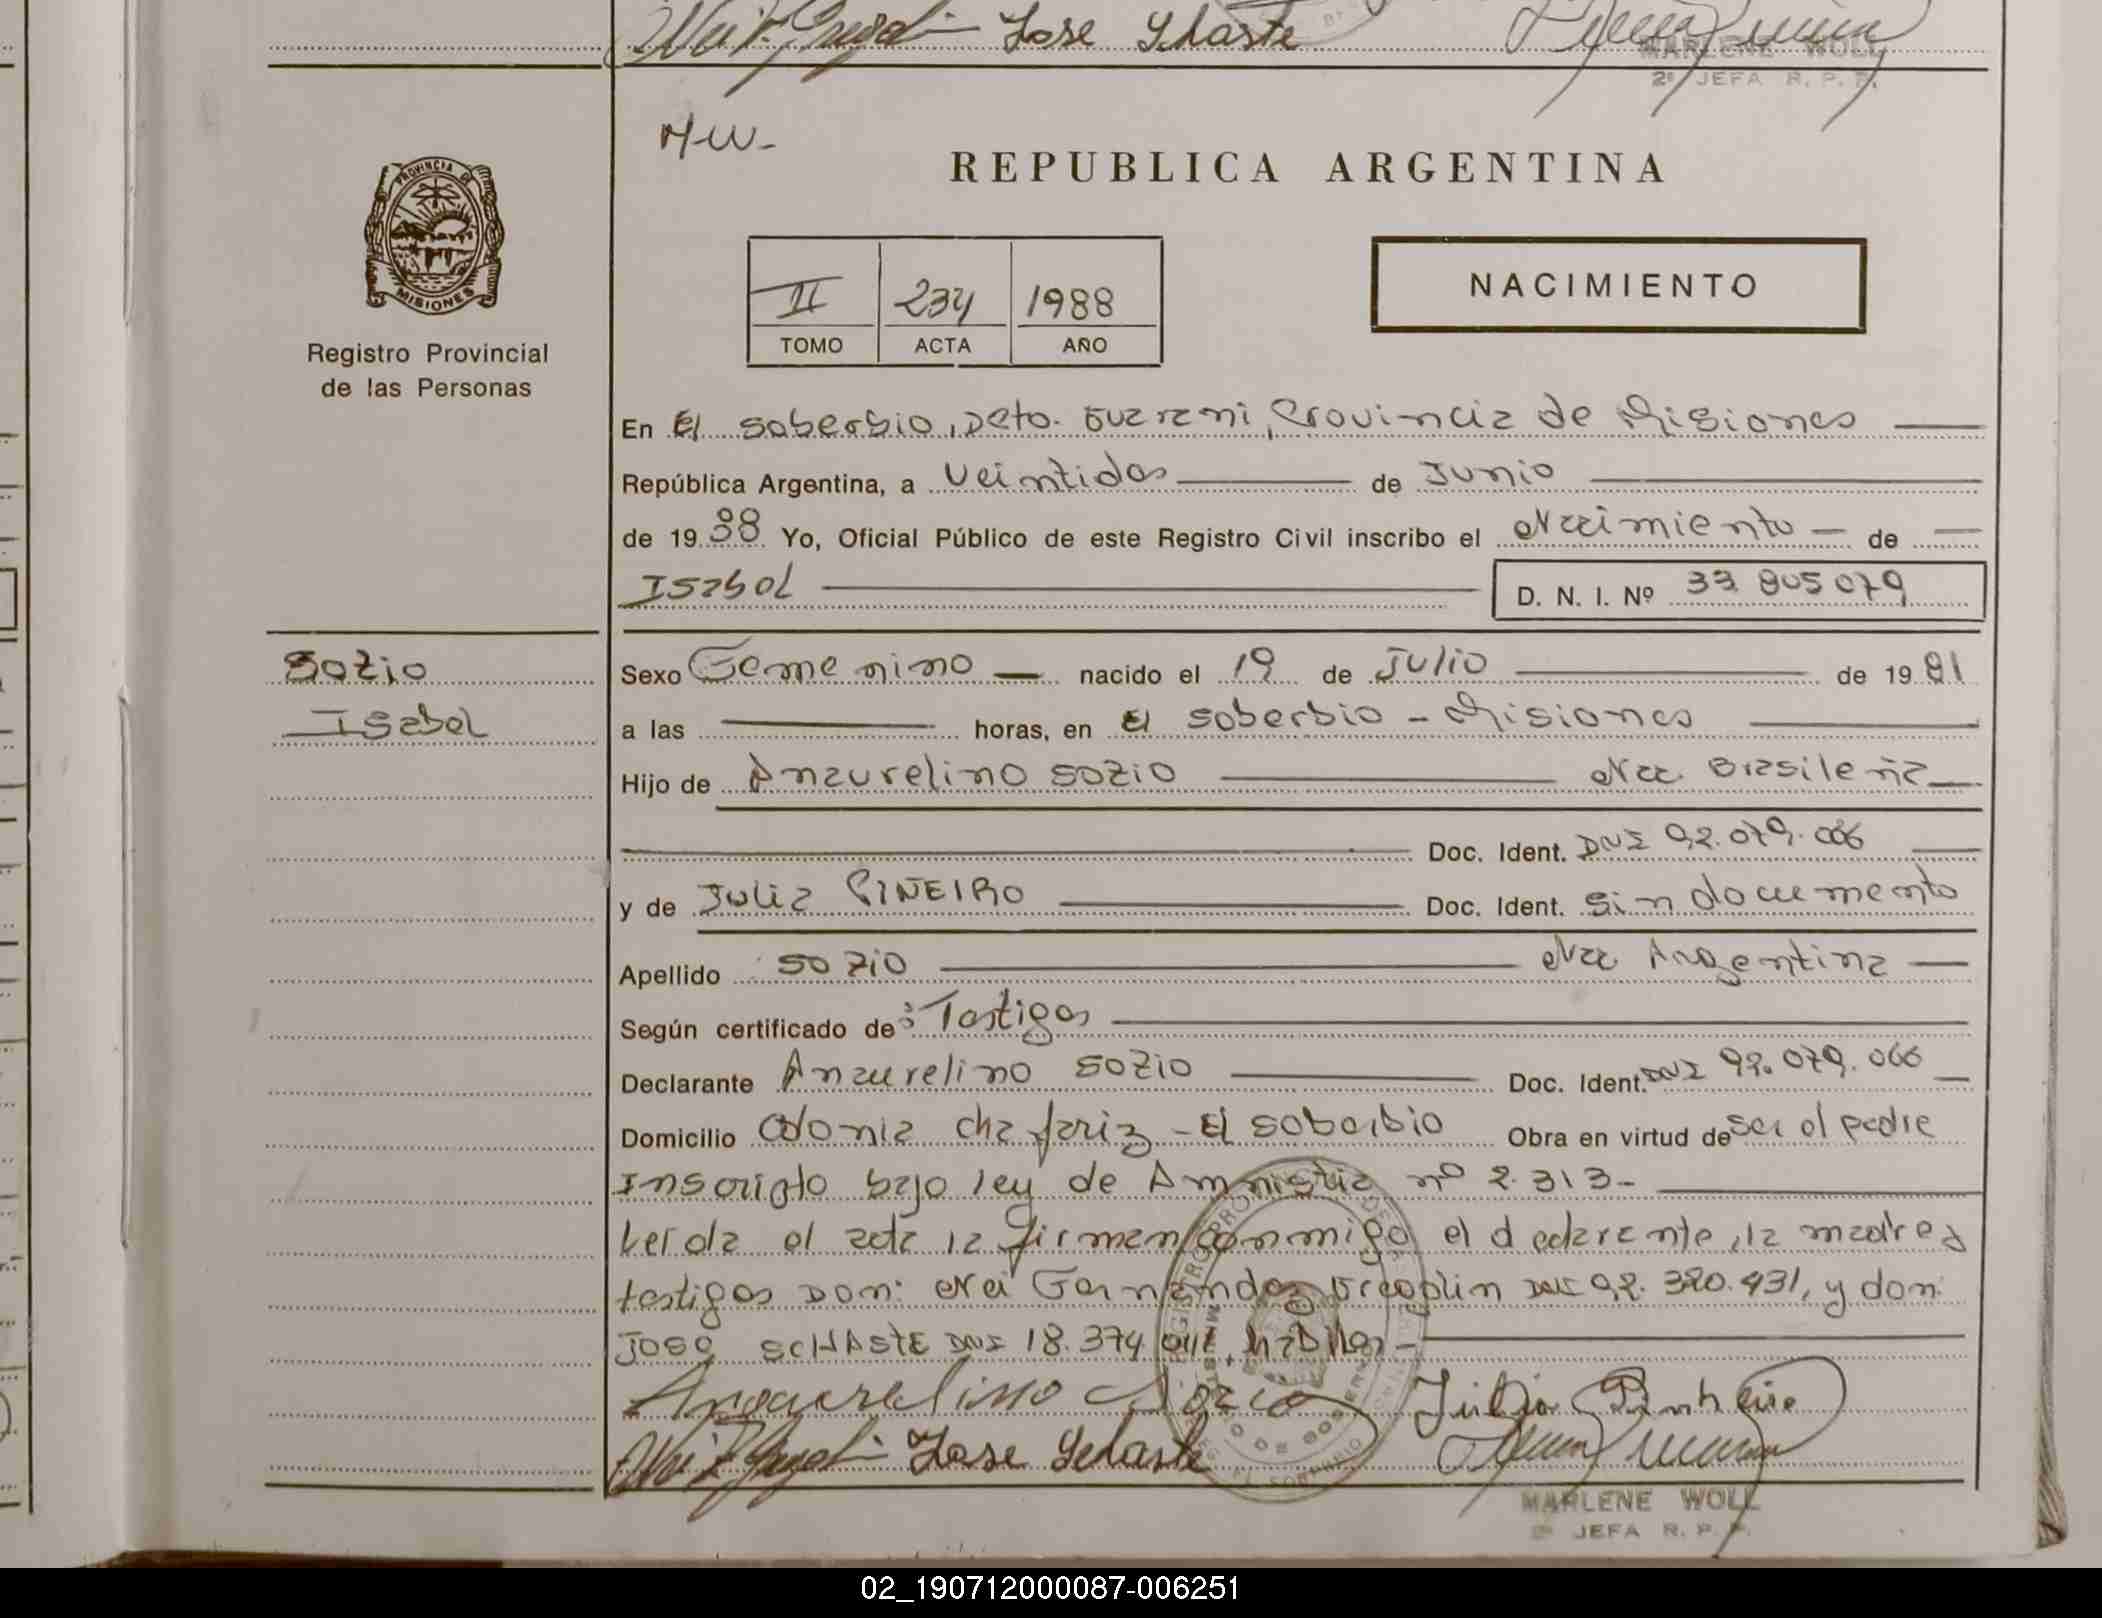 Jose Schaste
MARLENE WOLL
2ª JEFA R. P. P.
M-W-
REPUBLICA ARGENTINA
PROVINCIA DE
MISIONES
Registro Provincial
de las Personas
II 234 1988
TOMO ACTA AÑO
NACIMIENTO
En El Soberbio, Dcto. Guarani, Provincia de Misiones
República Argentina, a veintidos de Junio
de 19 88 Yo, Oficial Público de este Registro Civil inscribo el Nacimiento de
Isabel D. N. I. Nº 33 805 079
Sozio
Isabel
Sexo Femenino nacido el 19 de Julio de 19 81
a las horas, en El Soberbio - Misiones
Hijo de Anaurelino Sozio Nac. Brasileña
Doc. Ident. DNI 92.079.066
y de Julia PIÑEIRO Doc. Ident. sin documento
Apellido Sozio Nac. Argentina
Según certificado de: Testigos
Declarante Anaurelino Sozio Doc. Ident. DNI 92.079.066
Domicilio Colonia Chafariz - El Soberbio Obra en virtud de ser el padre
Inscripto bajo ley de Amnistia nº 2.313-
Leida el acta la firman conmigo el declarante, la madre y
testigos Don: Nei Fernandez DNI 92.320.431, y don:
Jose SCHASTE DNI 18.374
Anaurelino Sozio Julia Pinheiro
Jose Schaste
MARLENE WOLL
2ª JEFA R. P. P.
02_190712000087-006251